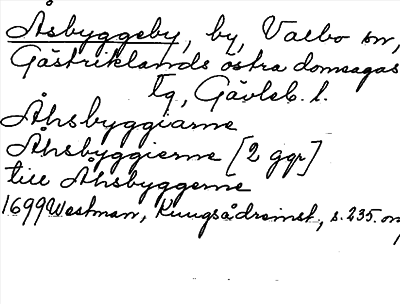 Åsbyggeby, by, Valbo sn,
Gästriklands östra domsagas
tg, Gävleb. l.
Åhsbyggiarne
Åhsbyggierne [2 ggr]
till Åhsbyggerne
1699 Westman, Kungsådrainst., s. 235. onj